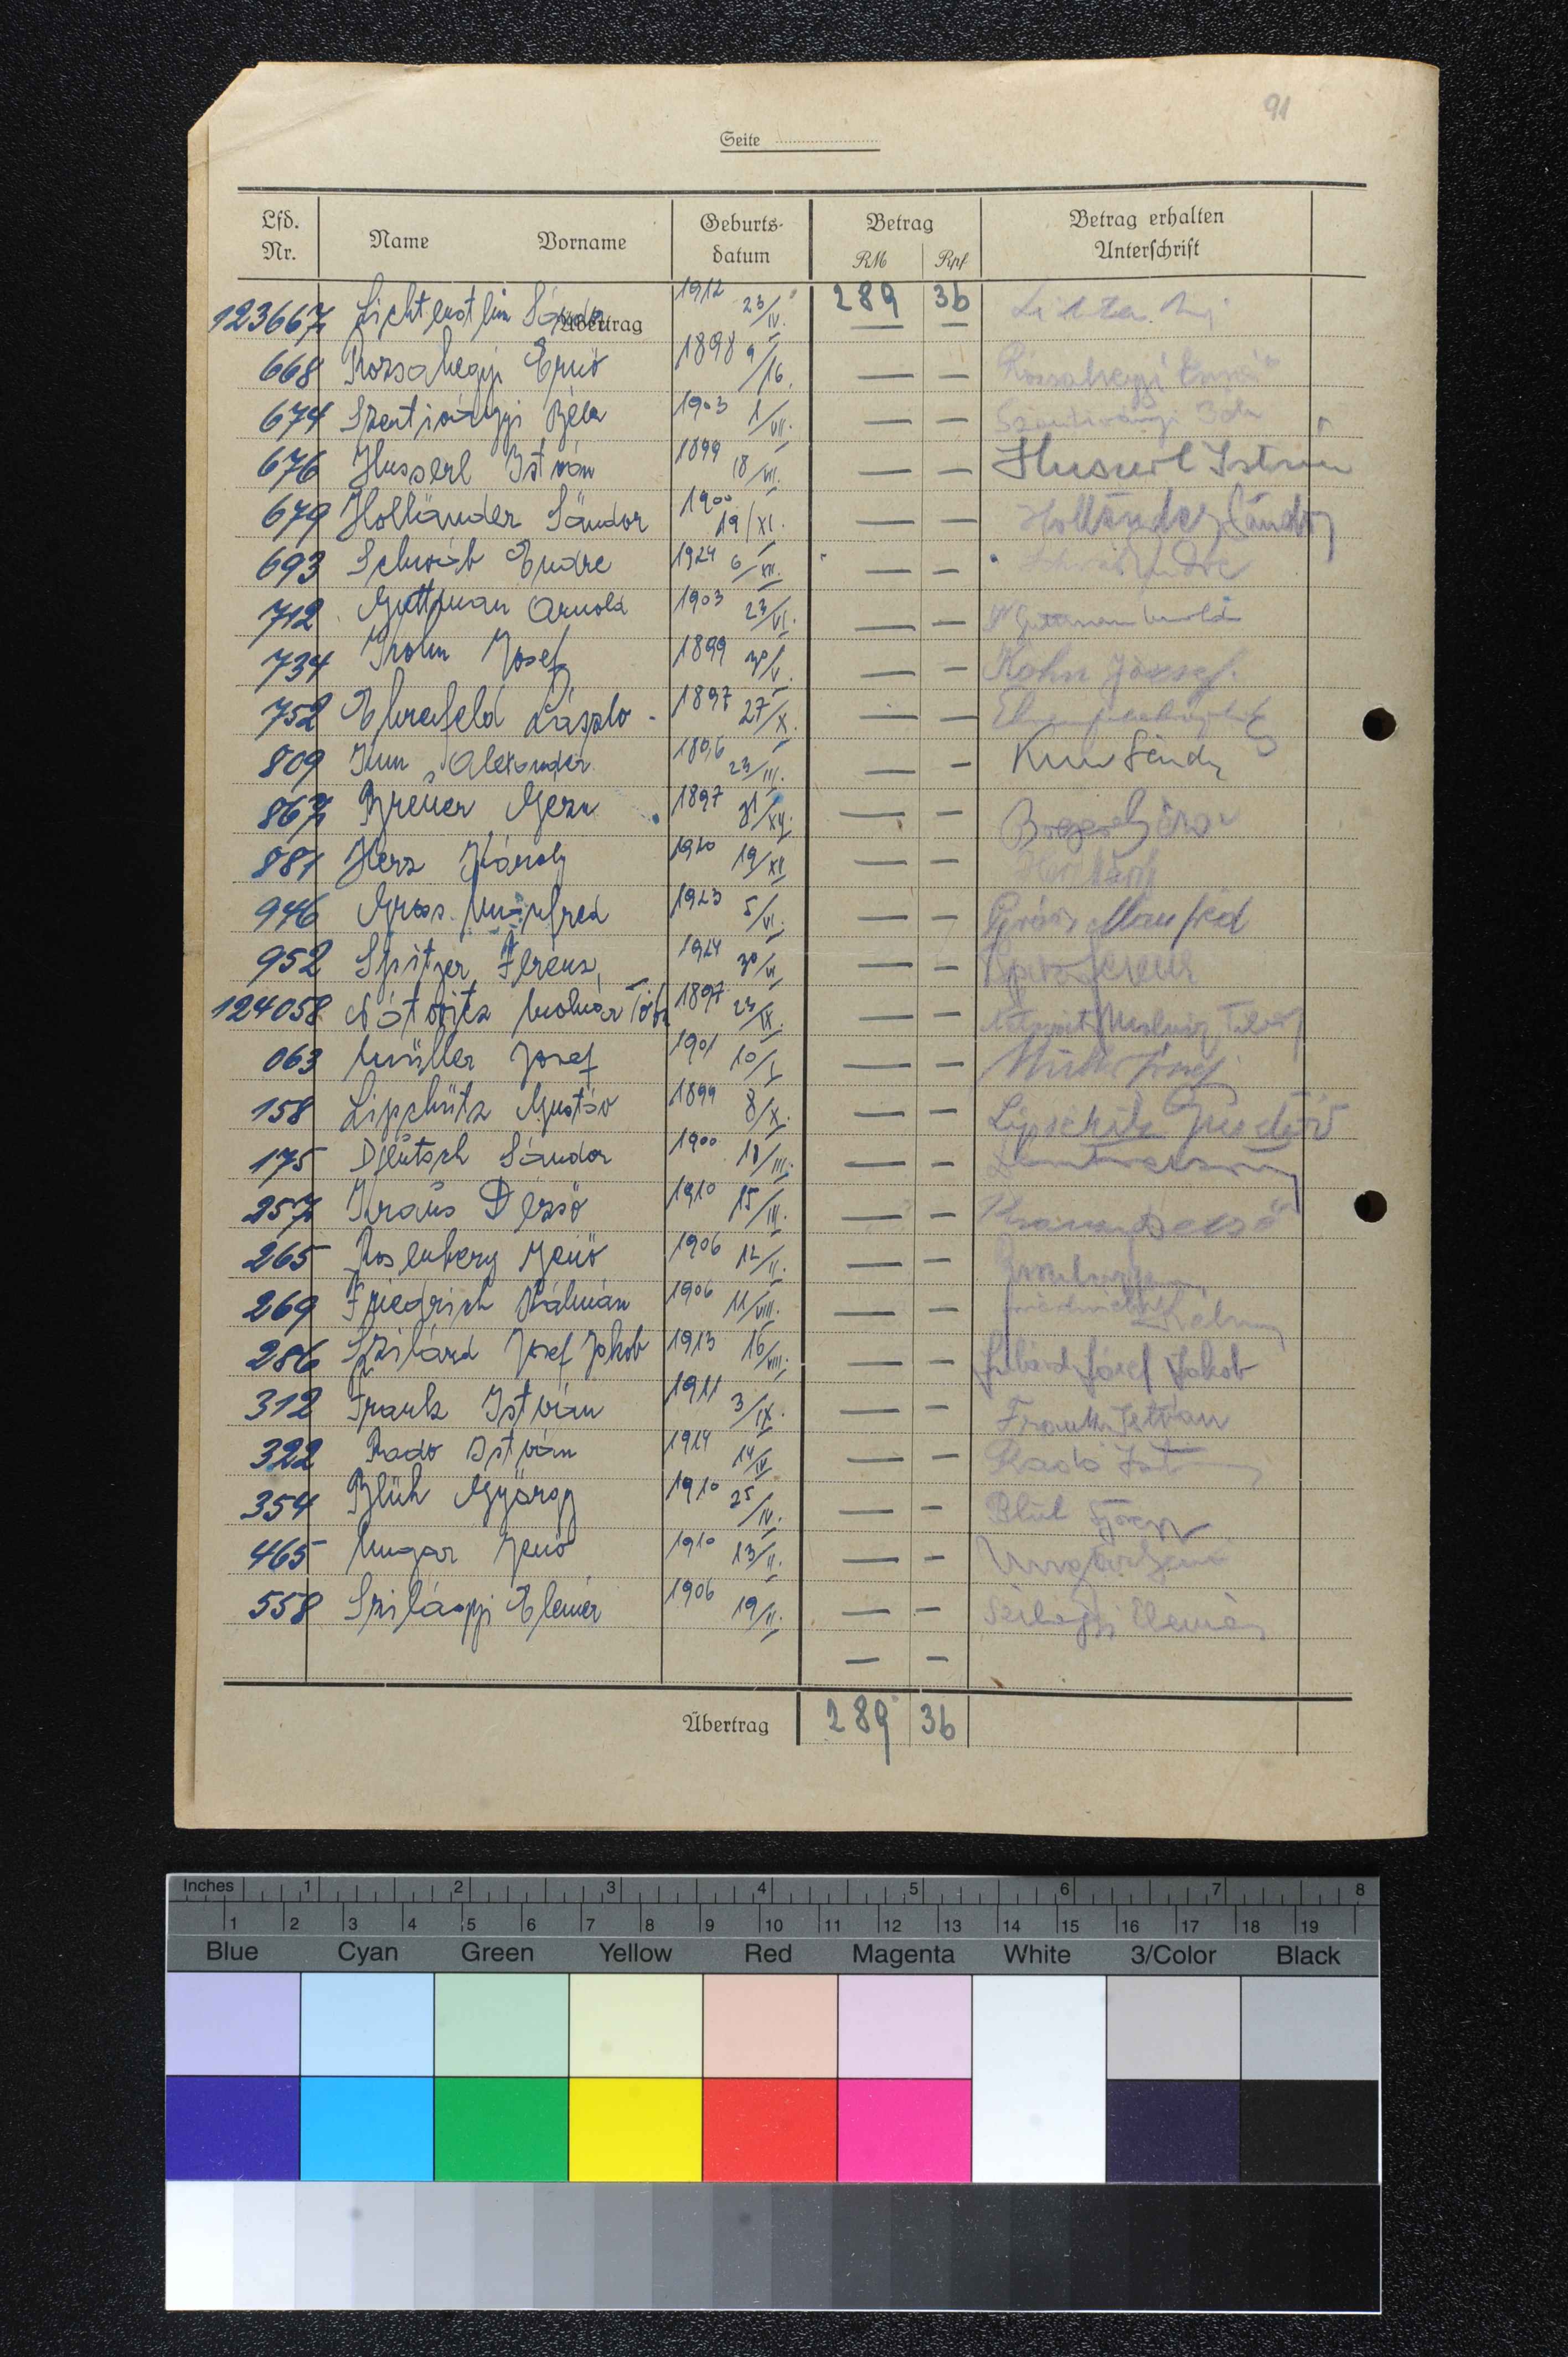 91
Seite
Lfd. Nr. Name Vorname Geburtsdatum Betrag RM Rpf Betrag erhalten Unterschrift
Übertrag
123667 Lichtenstein Sándor 1912 23/IV. 289 36
668 Rozsahegyi Ernö 1898 9/16. — — Rózsahegyi Ernö
674 Szentiványi Béla 1903 1/VII. — — Szentiványi Béla
676 Husserl István 1899 18/VII. — — Husserl István
679 Holländer Sándor 1900 19/XI. — — Holländer Sándor
693 Schwáb Endre 1924 6/XII. — — Schwáb Endre
712 Guttman Arnold 1903 23/VI. — — Guttman Arnold
734 Kohn Josef 1899 30/V. — — Kohn József.
752 Ehrenfeld László 1897 27/X. — —
809 Kun Alexander 1896 23/III. — — Kun Sándor
867 Breuer Geza 1897 31/XII. — —
881 Herz Károly 1920 19/XI — — Herz Károly
946 Gross Manfred 1923 5/VI. — — Grósz Manfréd
952 Spitzer Ferenz 1924 30/VI — — Spitzer Ferenc
124058 Nátovitz Molnár 1897 23/IX. — — Molnár
063 Müller Josef 1901 10/I — — Müller József
158 Lipschütz Gustáv 1899 8/X. — — Lipschitz Gusztáv
175 Deutsch Sándor 1900 18/III. — —
257 Kraus Dezsö 1910 15/III. — — Kraus Dezsö
265 Rosenberg Jenö 1906 12/II. — — Rosenberg Jenö
269 Friedrich Kálmán 1906 11/VIII. — — Friedrich Kálmán
286 Szilárd Josef Jakob 1913 16/VIII. — — Szilárd József Jakob
312 Frank István 1911 3/IX. — — Frank István
322 Rado István 1914 14/IV — — Radó István
354 Blüh György 1910 25/IV. — — Blüh György
465 Ungar Jenö 1910 13/II. — — Ungár Jenö
558 Szilágyi Elemér 1906 19/II. — — Szilágyi Elemér
— —
Übertrag 289 36
Inches 1 2 3 4 5 6 7 8
1 2 3 4 5 6 7 8 9 10 11 12 13 14 15 16 17 18 19
Blue Cyan Green Yellow Red Magenta White 3/Color Black